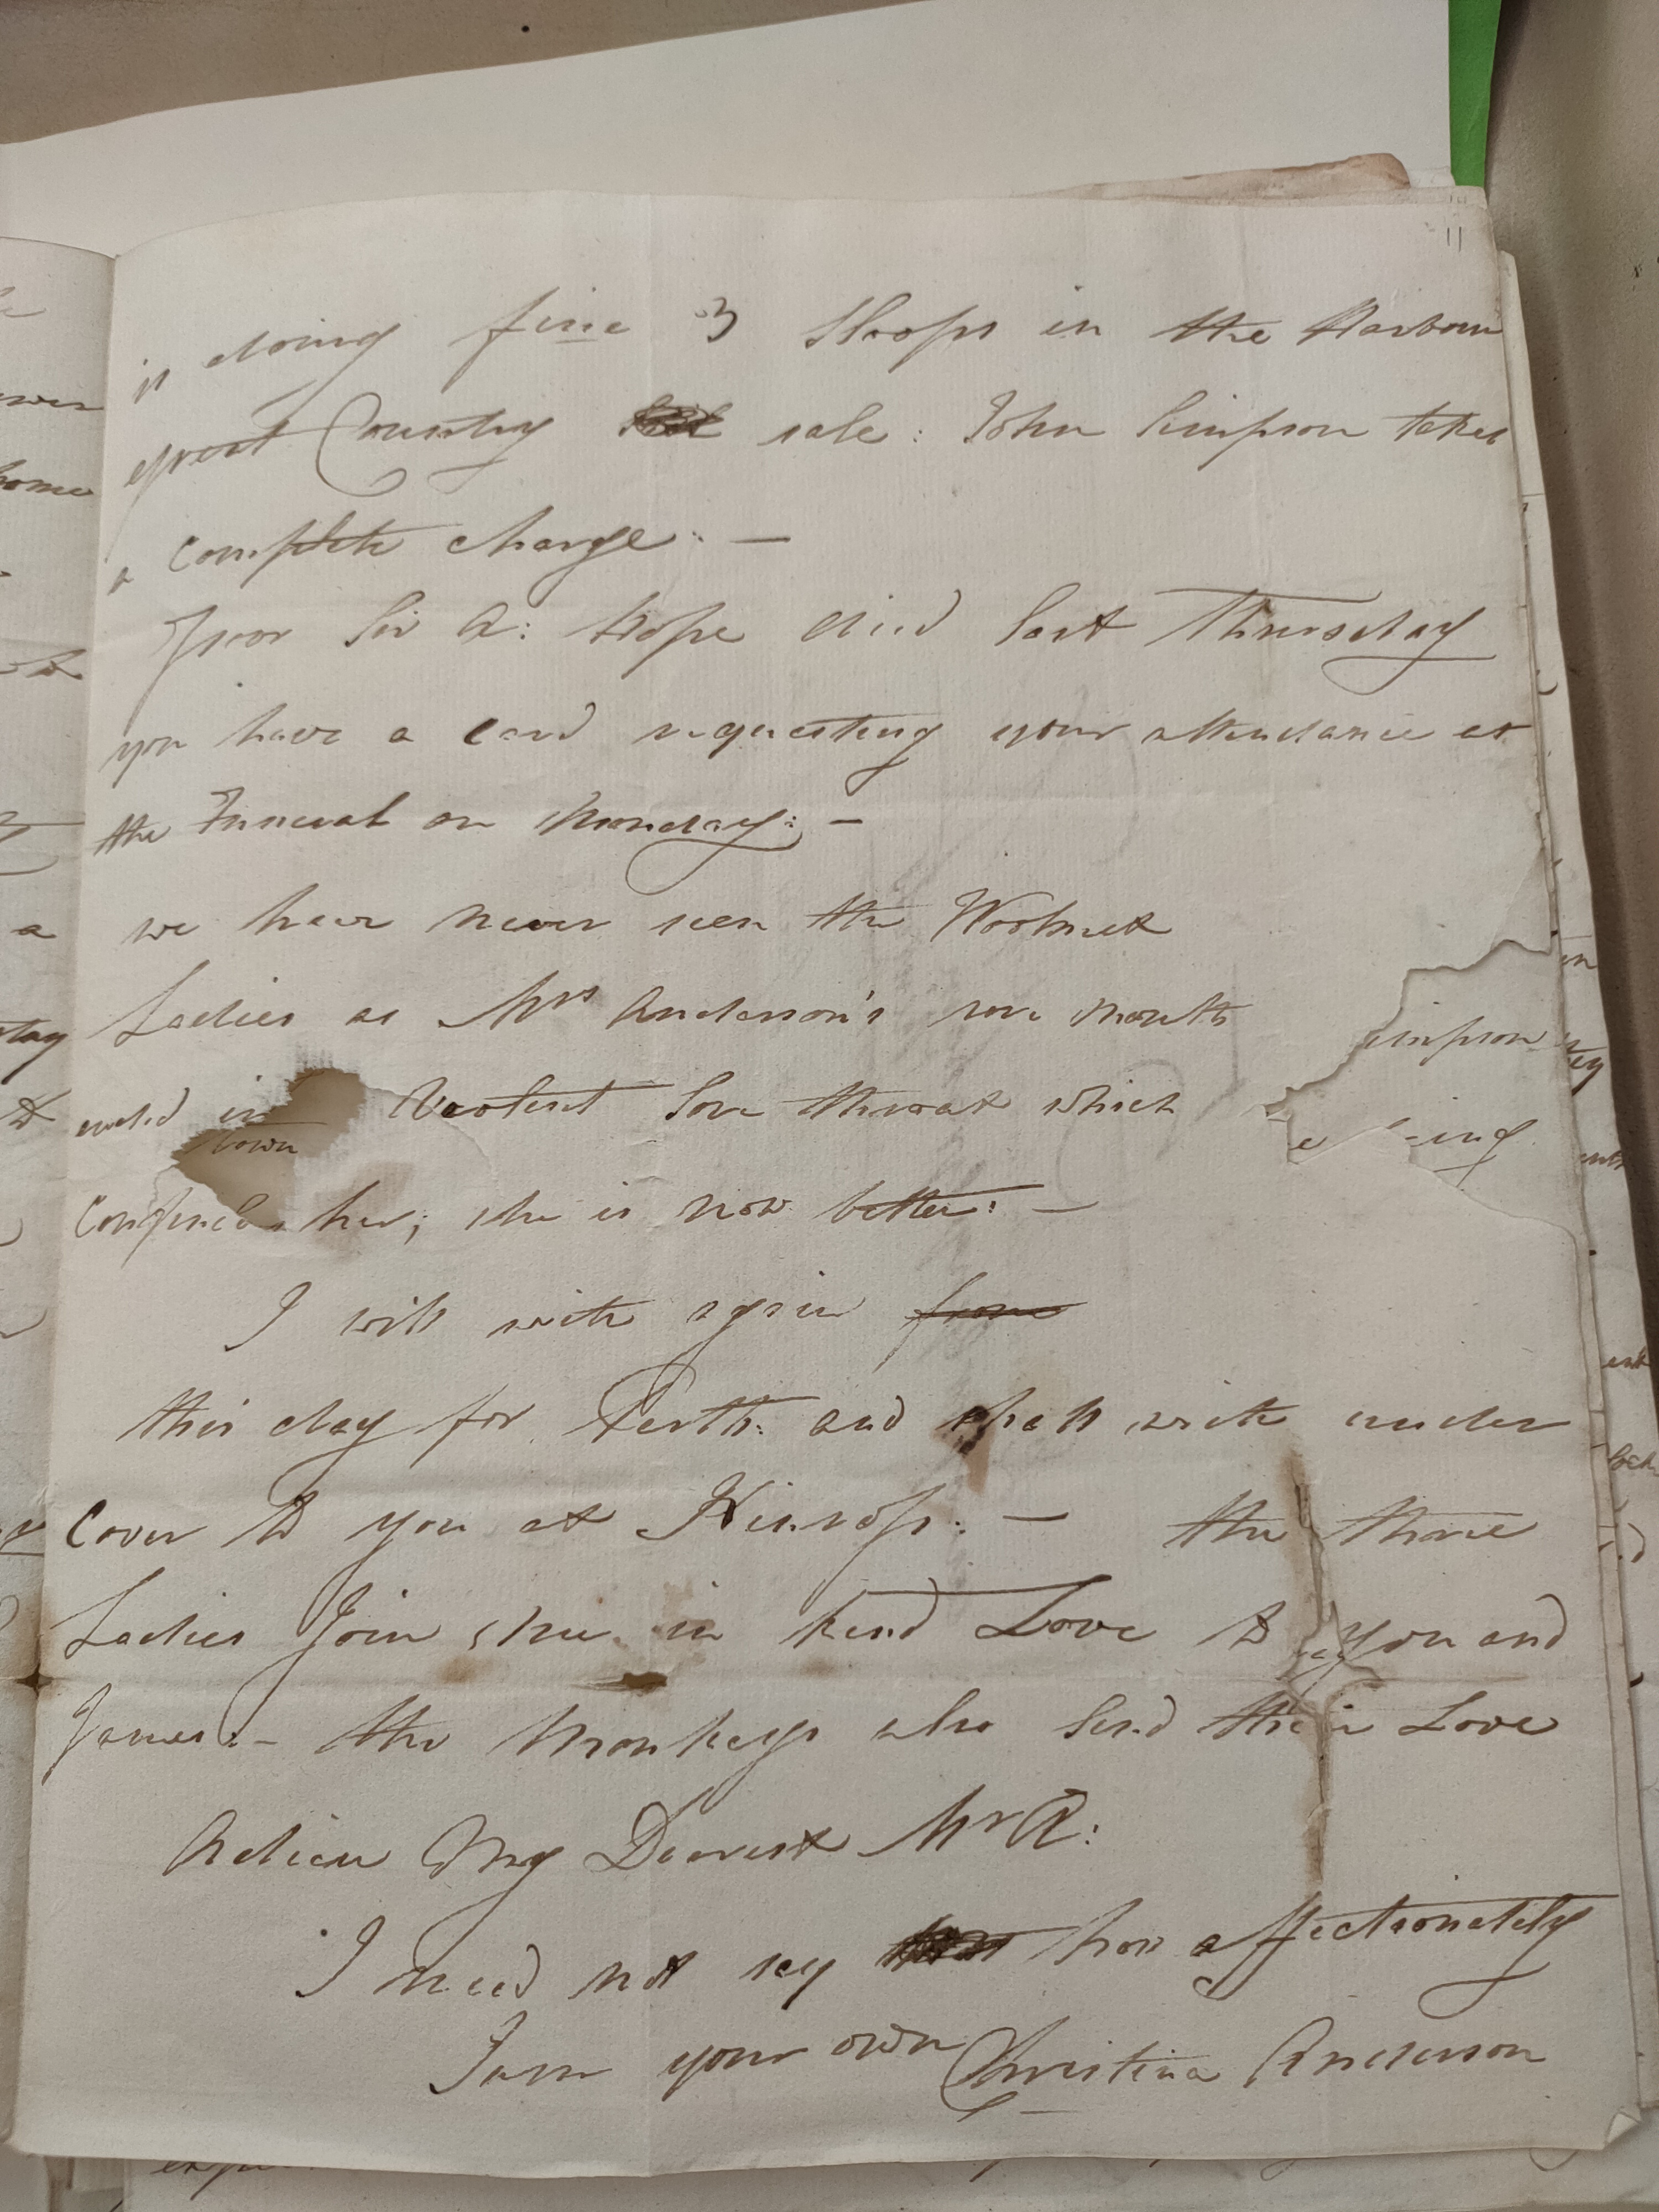 11
is doing fine 3 Sloops in the Harbour
great Country sale: John Simpson takes
a complete charge: —
Poor Sir A: Hope died last Thursday
you have a card requesting your attendance at
the Funeral on Monday: —
we have never seen the Woolmet
Ladies as Mrs Anderson's sore mouth
ended in Violent Sore throat which
confines her; she is now better: —
I will write again from
this day for Perth: and shall write under
Cover to you at Kinross: — the three
Ladies Join me in kind Love to you and
James: — the Monkeys who send their Love
Adieu My Dearest Mr A:
I need not say how affectionately
I am your own Christina Anderson